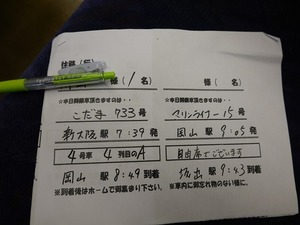 往路(行)
様(1名)
☆本日御乗車頂きますのは…
こだま 733号
新大阪駅 7:39発
4号車 4列目のA
岡山駅 8:49到着
※到着後はホームで御集まり下さい。
様( 名)
☆本日御乗車頂きますのは…
マリンライナー15号
岡山駅 9:05発
自由席でございます
坂出駅 9:43到着
※車内に御忘れ物のない様に。